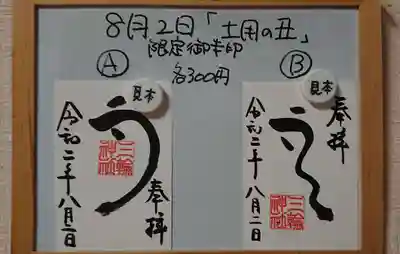 8月2日「土用の丑」
限定御朱印
各300円
Ⓐ
見本
う
奉拝
三輪神社
令和二年八月二日
Ⓑ
見本
奉拝
三輪神社
令和二年八月二日